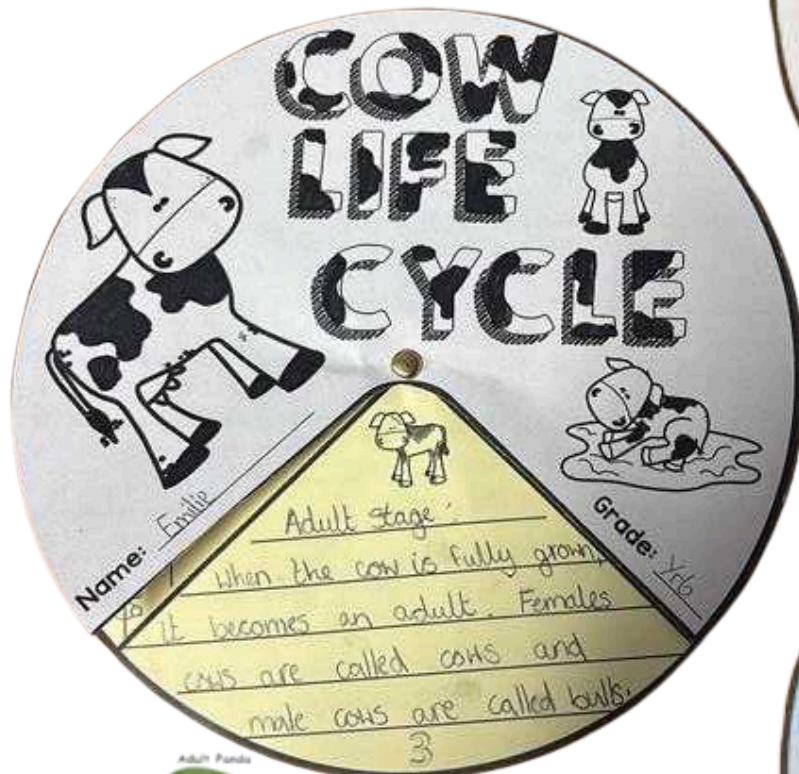 COW
LIFE
CYCLE
Name: Emilie
Grade: Yr6
Adult stage:
When the cow is fully grown,
it becomes an adult. Females
cows are called cows and
male cows are called bulls.
3
Adult Panda